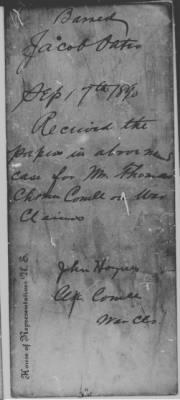 Barred
Jacob Oates
Sep 17th 1890
Received the
papers in above
case for Mr. Thomas
Chm Comtte on War
Claims
John Haynes
Clk Comtte
War Cls
House of Representatives U. S.